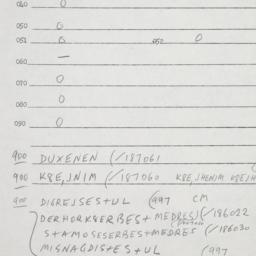 040 0
050 0
051 0 050 0
060 —
070 0
080 0
090 0
900 DUXENEN (/187061
900 K8E,JNIM (/187060 K8E,JHENJM
900 DIGREJSES+UL (997 CM
DERHORK8ERBES+MEDRES)(/186022
S+AMOSESERBES+MEDRES (/186030
MISNAGDIS+ES+UL (997